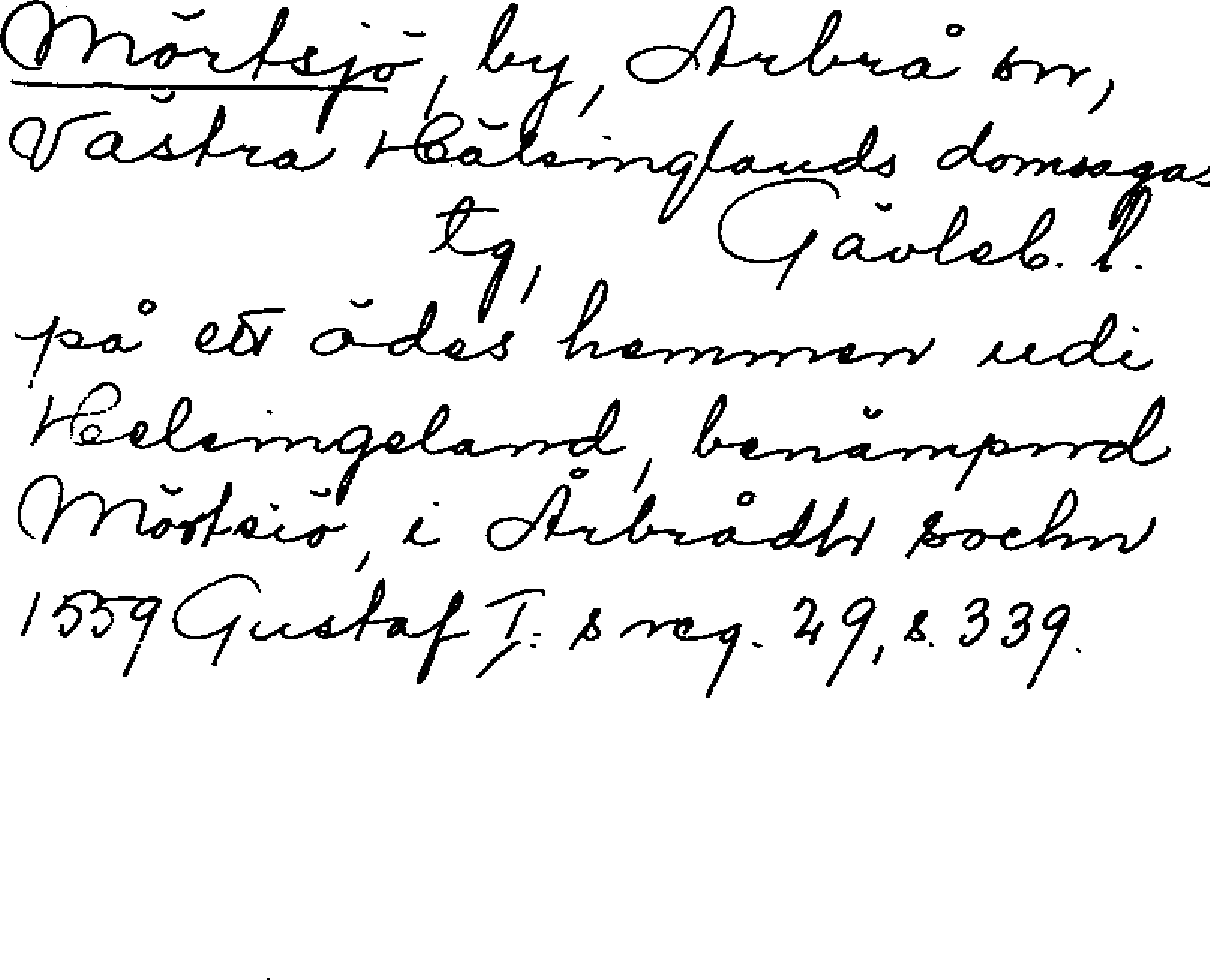 Mörtsjö, by, Arbrå sn,
Västra Hälsinglands domsagas
tg, Gävleb. l.
på ett ödes hemmen udi
Helsingeland, benämpnd
Mörtsiö, i Årbrådh sochn
1559 Gustaf I:s reg. 29, s. 339.